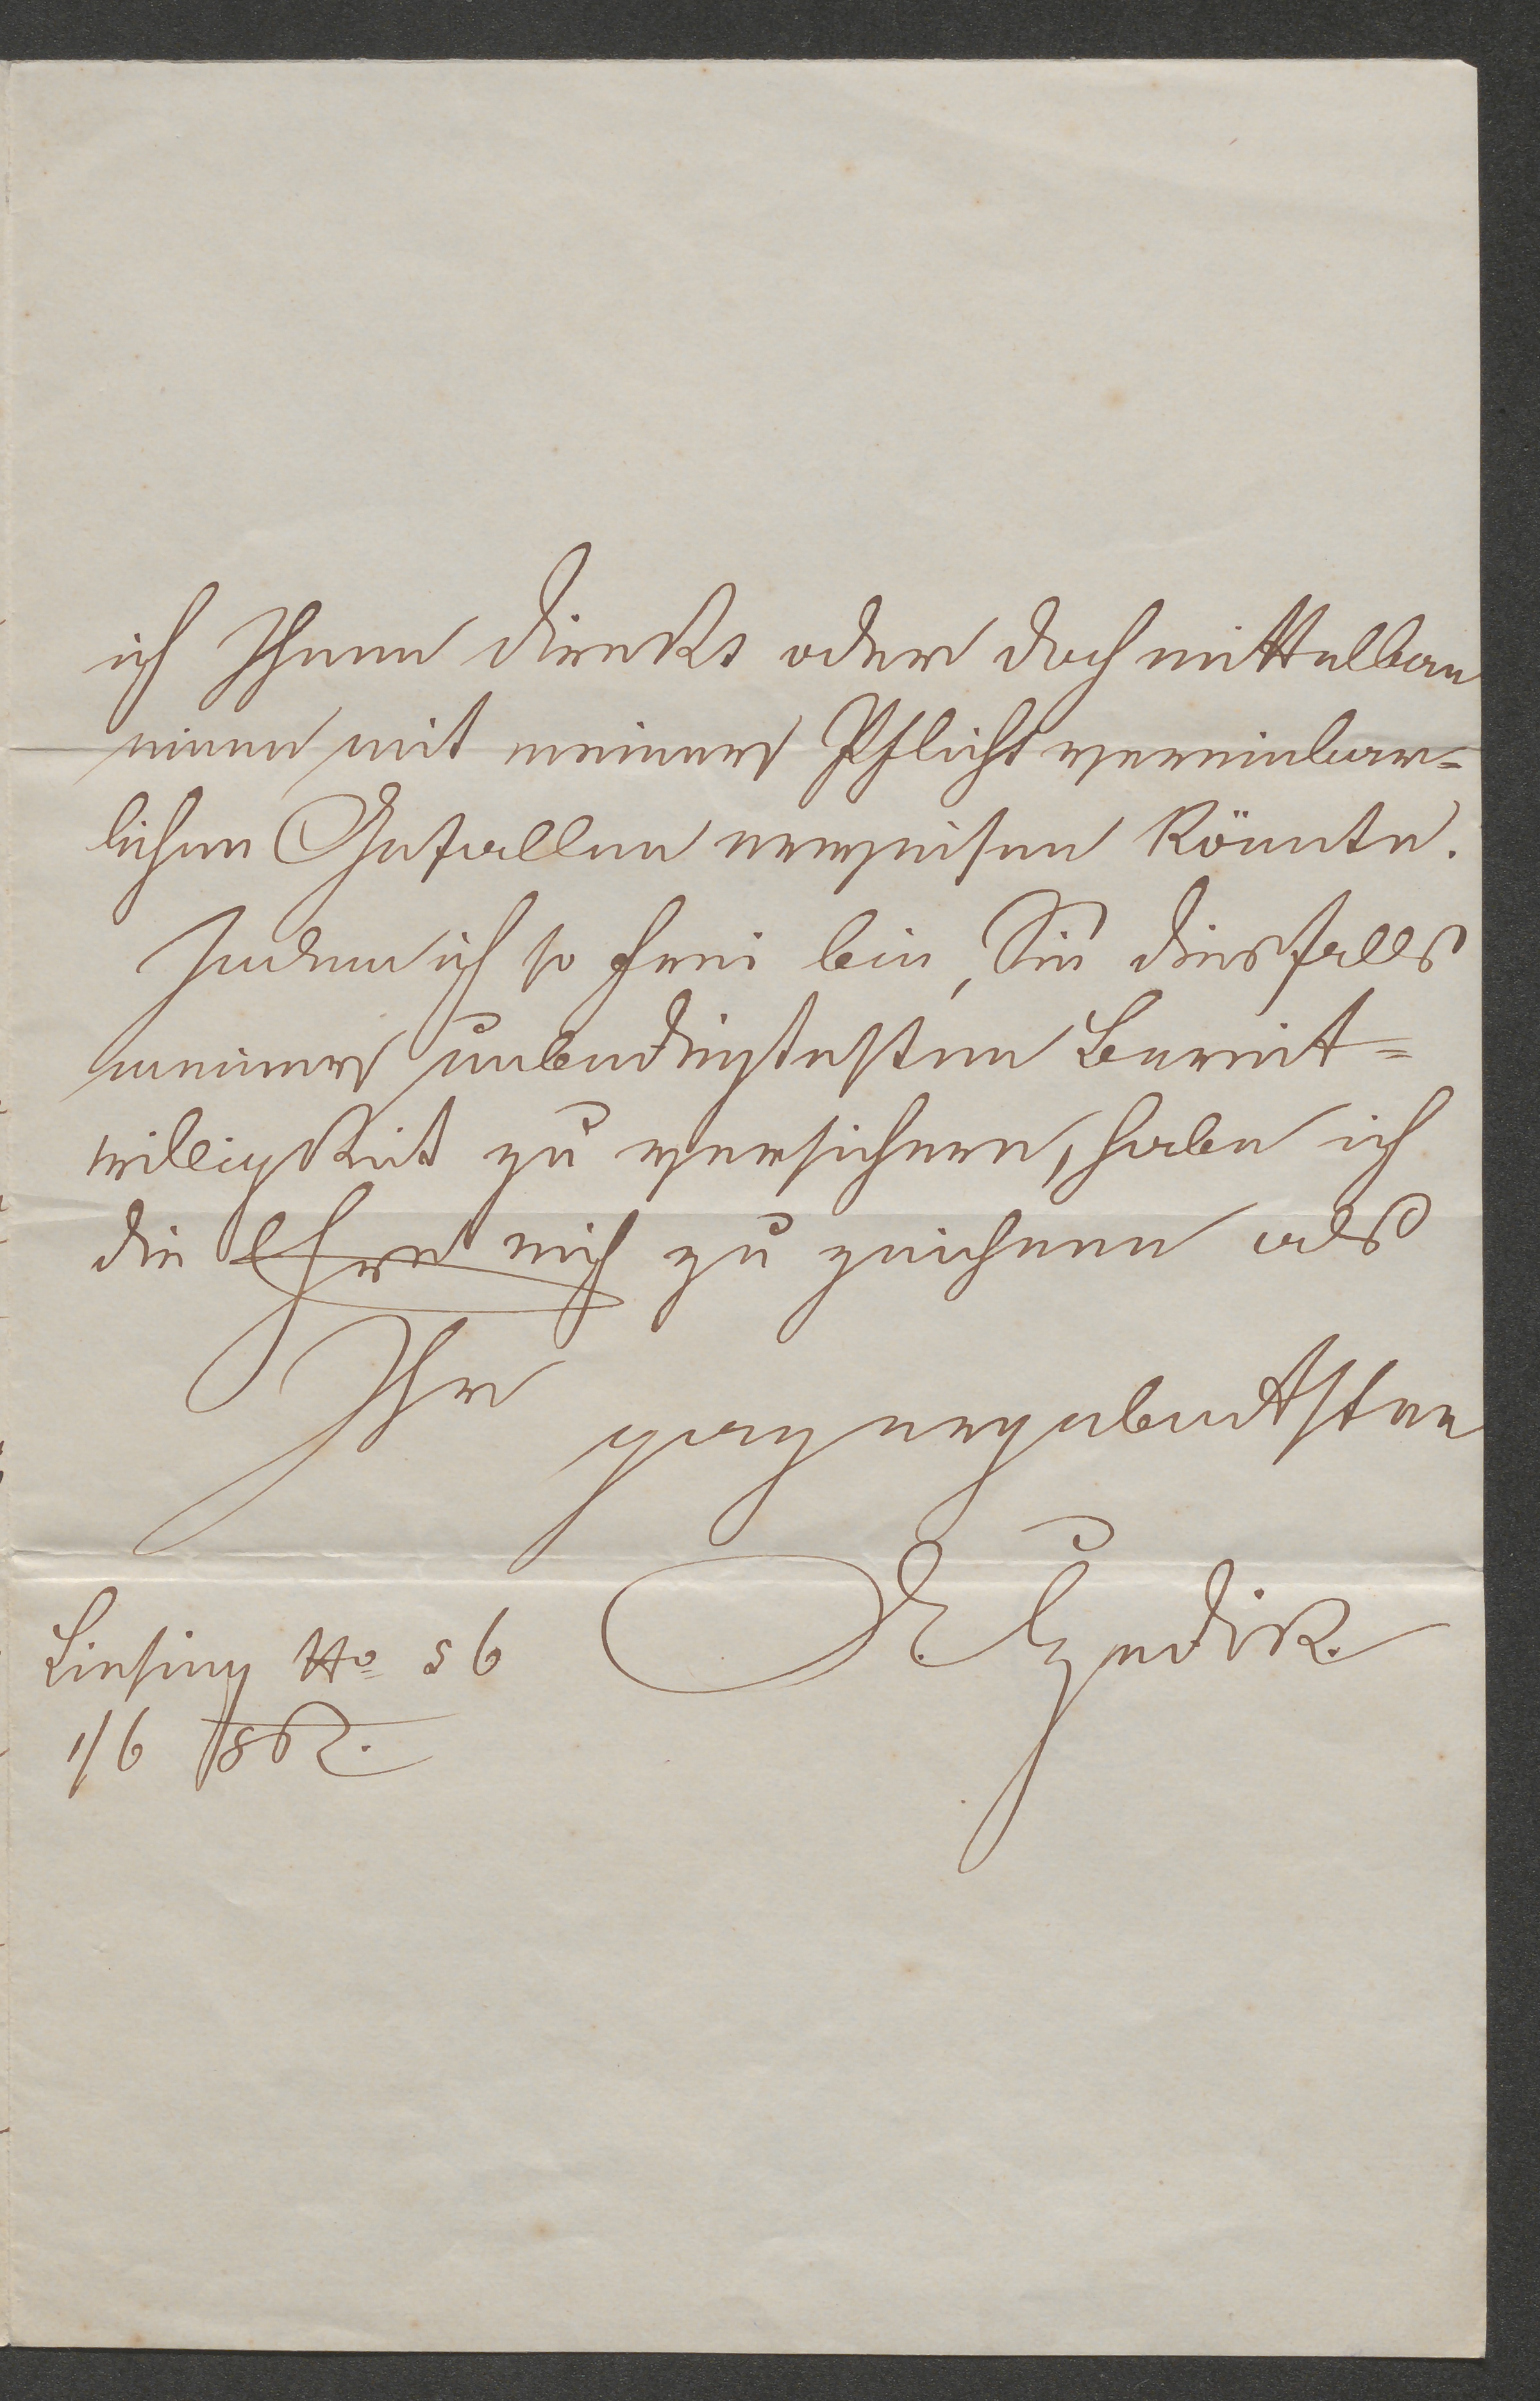 ich Ihnen direkt oder doch mittelbar
einen mit meiner Pflicht vereinbar=
lichen Gefallen erweisen könnte.
Indem ich so frei bin, Sie diesfalls
meiner unbedingtesten Bereit=
willigkeit zu versichern, habe ich
die Ehre mich zu zeichnen als
Ihr
ganz ergebenster
Liesing No 56
1/6